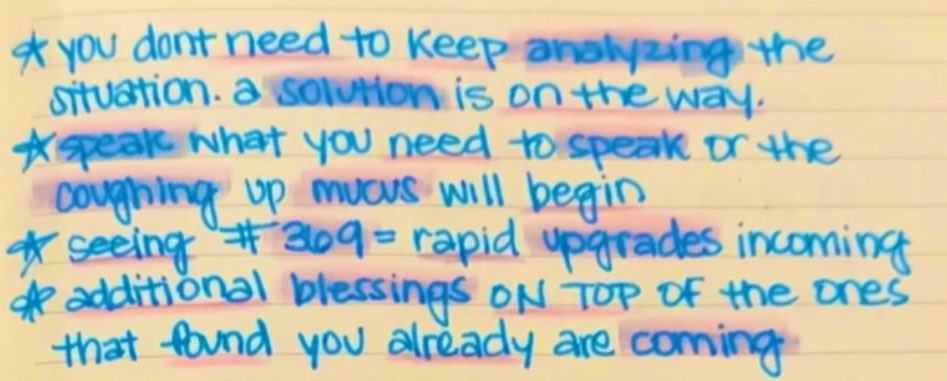 * you dont need to keep analyzing the
situation. a solution is on the way.
* speak what you need to speak or the
coughing up mucus will begin
* seeing # 369 = rapid upgrades incoming
* additional blessings ON TOP OF the ones
that found you already are coming